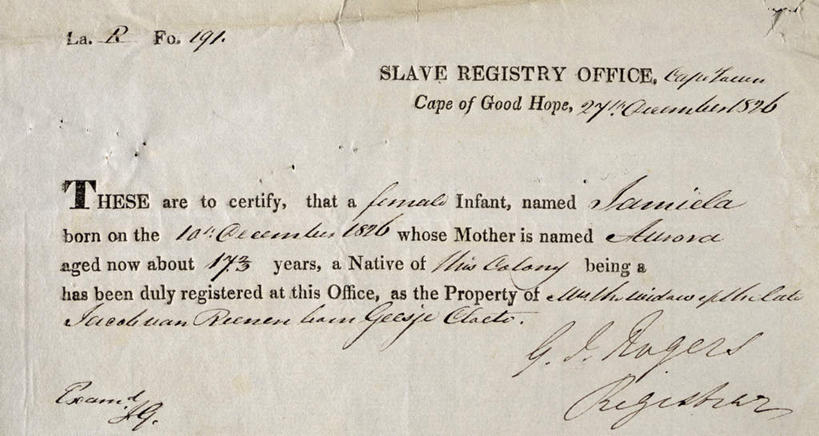 La. R Fo. 191.
SLAVE REGISTRY OFFICE, Cape Town
Cape of Good Hope, 27th December 1826
THESE are to certify, that a female Infant, named Jamiela
born on the 10th December 1826 whose Mother is named Aurora
aged now about years, a Native of this Colony being a
has been duly registered at this Office, as the Property of Mrs the widow of the late
Jacob van Reenen born Geesje Cloete.
G. J. Rogers
Registrar
Examd